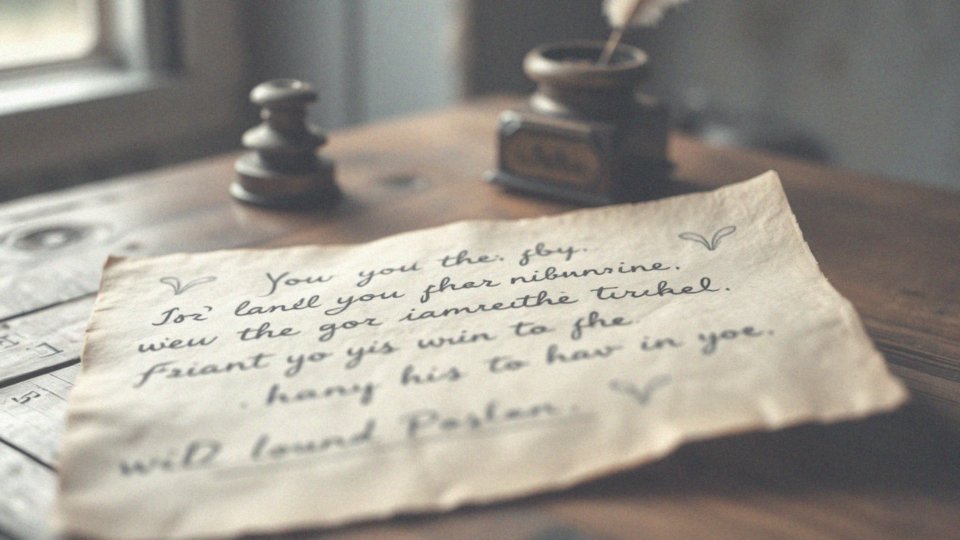 You you the. gby.
Joz' landl you gher nibunrine.
wieu the gor iamreithe tirikel.
Friant yo yis wrin to ghe.
. hany his to hav in yoe.
wilD lound Paslan.